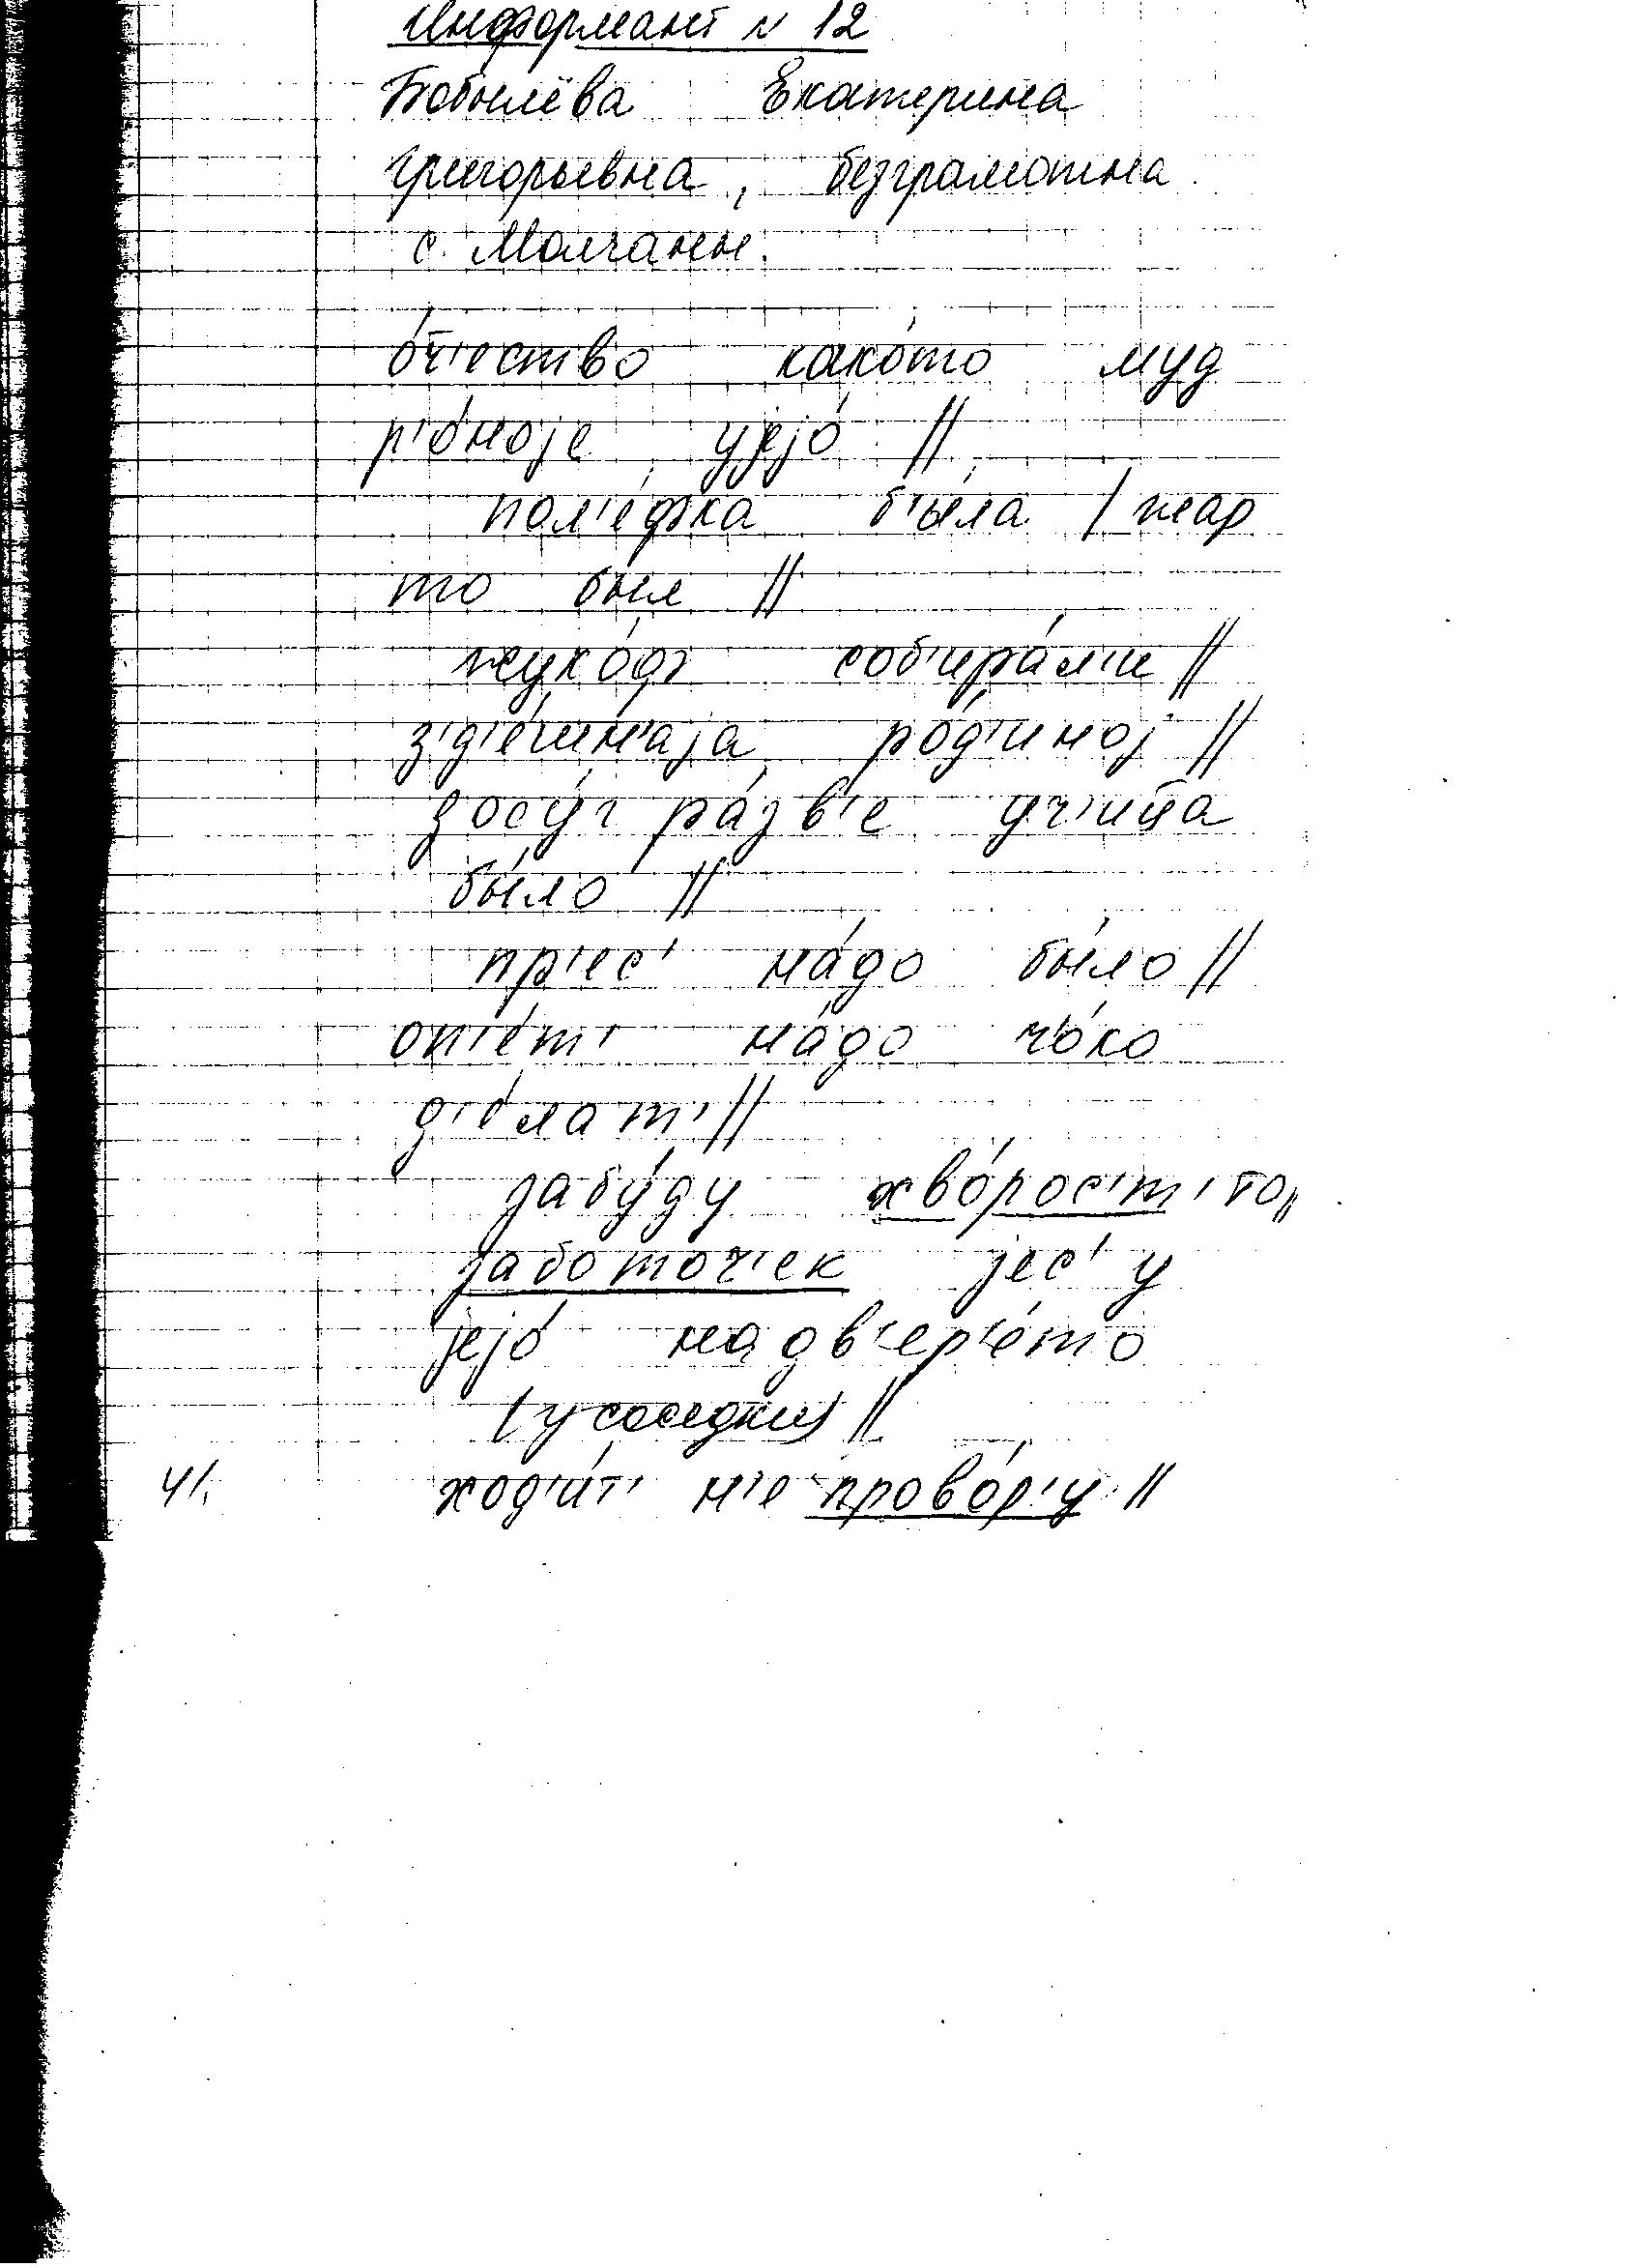 Информант № 12
Бобылёва Екатерина
Григорьевна, безграмотна
с. Молчаны.
о́т'ч'ество како́то муд
р'о́нојe ујејо́ //
пол'е́фка бы́ла / жар
то был //
собира́л'и //
з'д'е́шн'аја ро́д'иној //
досу́г ра́зв'е уч'и́ца
бы́ло //
пр'ес' на́до бы́ло //
оп'е́т' на́до ч'о́ко
д'е́лат' //
забу́ду хво́рос'т'то //
заботоч'ек јес' у
јејо́ надв'ер'е́то
(у соседки) //
41. ход'и́т' н'е прово́р'у //